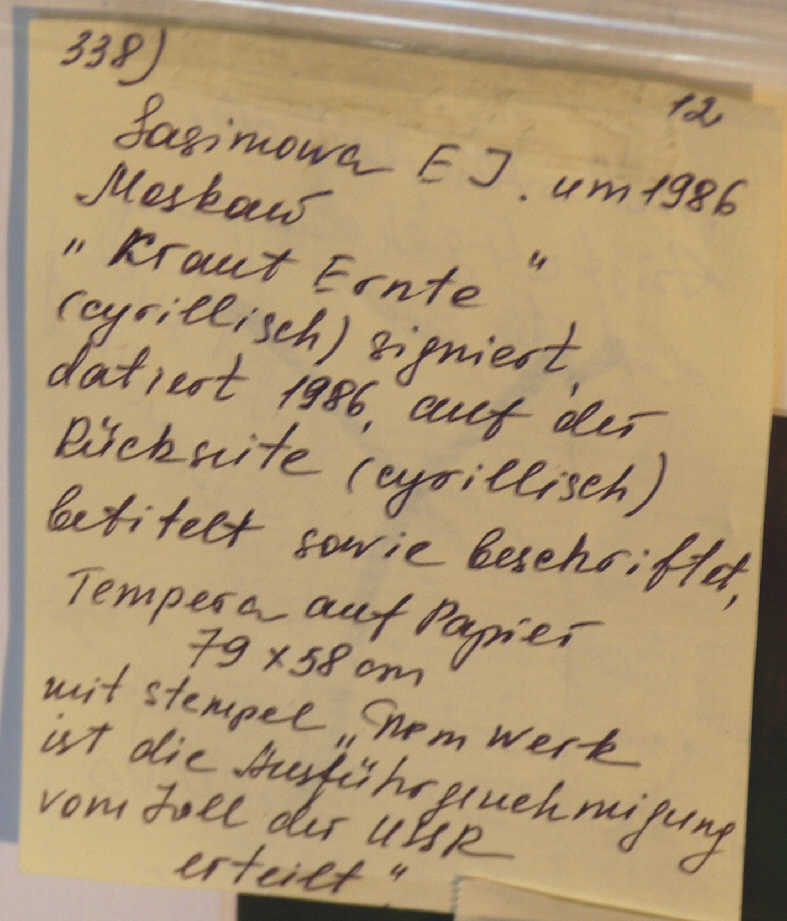 338)
12
Sasimowa E J. um 1986
Moskau
" Kraut Ernte "
(cyrillisch) signiert,
datiert 1986, auf der
Rückseite (cyrillisch)
betitelt sowie beschriftet,
Tempera auf Papier
79 x 58 cm
mit stempel „Dem Werk
ist die Ausführgenehmigung
vom Zoll der USSR
erteilt"